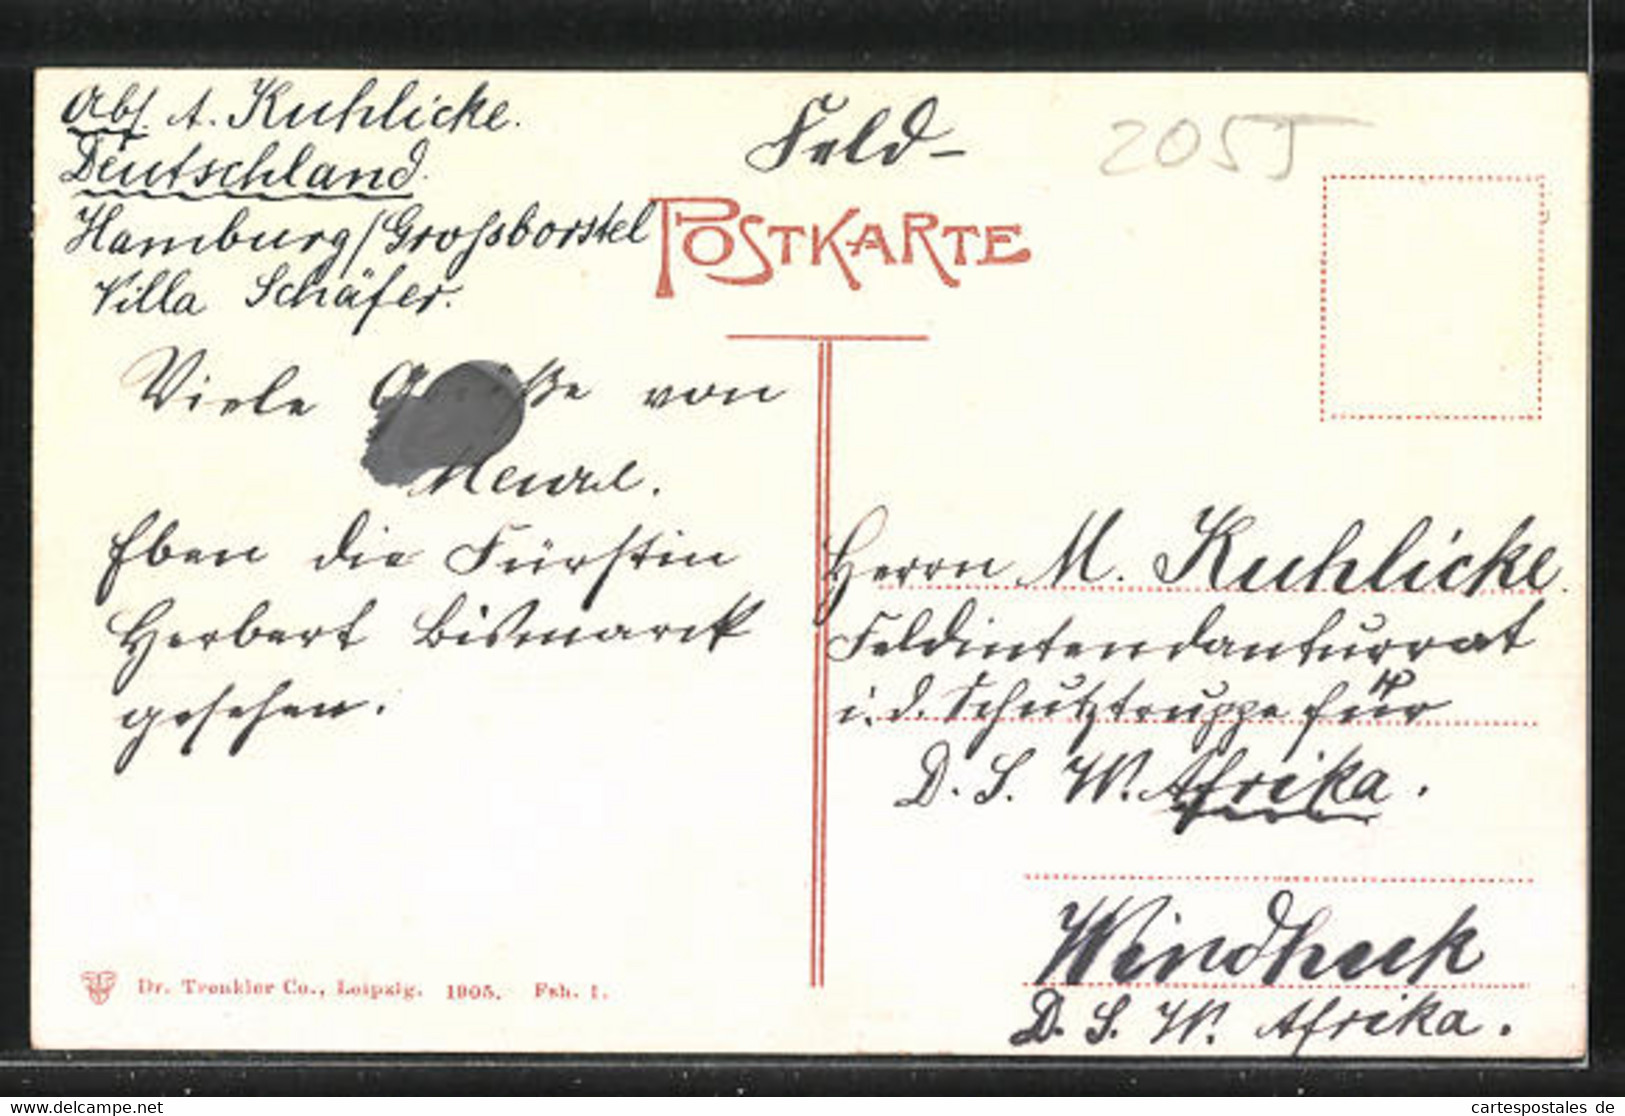 Abs. A. Kuhlicke.
Deutschland.
Hamburg/Grossborstel
Villa Schäfer.
Feld-
2055
POSTKARTE
Viele Grüße von
Eben die Fürstin
Herbert Bismarck
gesehen.
Herrn M. Kuhlicke.
Feldintendanturrat
i. d. Schutztruppe für
D. S. W. Afrika.
Windhuk
D. S. W. Afrika.
Dr. Trenkler Co., Leipzig. 1905. Fsh. 1.
cartespostales de